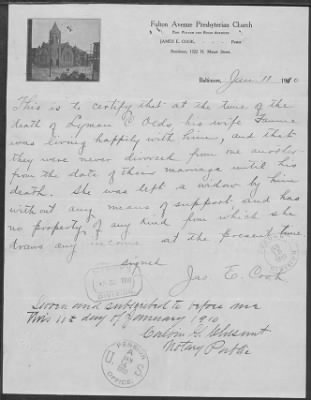 Fulton Avenue Presbyterian Church
JAMES E. COOK, Pastor
Baltimore, Jan 11 1910
This is to certify that at the time of the
death of Lyman C Olds, his wife Fannie
was living happily with him, and that
they were never divorced from one another
from the date of their marriage until his
death. She was left a widow by him
without any means of support and has
no property of any kind from which she
draws any income at the present time
signed
Jas. E. Cook
Sworn and subscribed to before me
This 11th day of January 1910
Notary Public
PENSION
OFFICE
U S